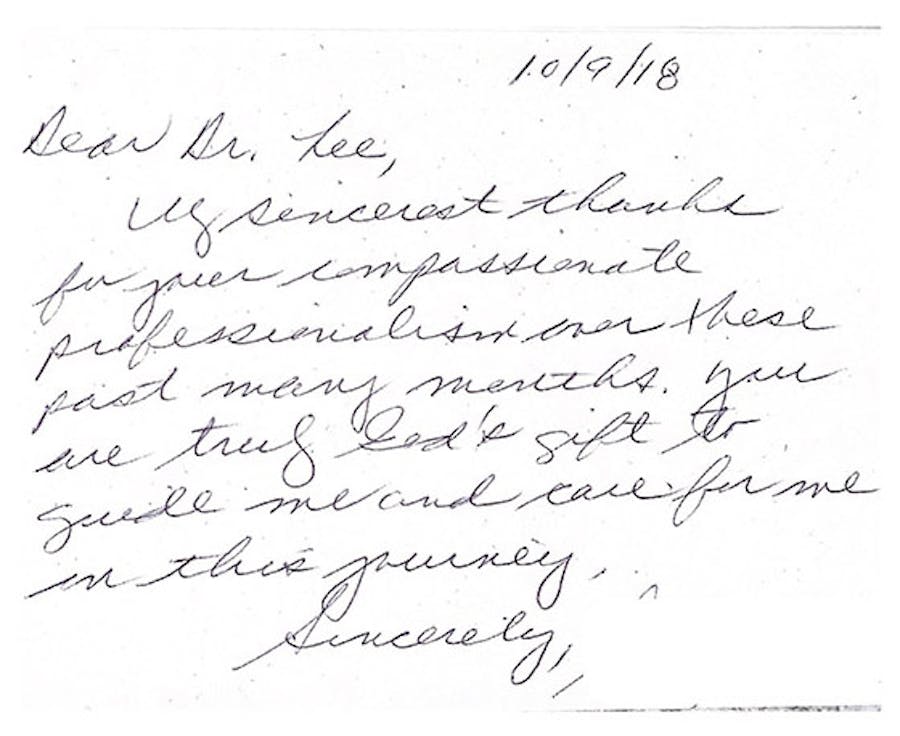 10/9/18
Dear Dr. Lee,
My sincerest thanks
for your compassionate
professionalism over these
past many months. You
are truly God's gift to
guide me and care for me
in this journey.
Sincerely,